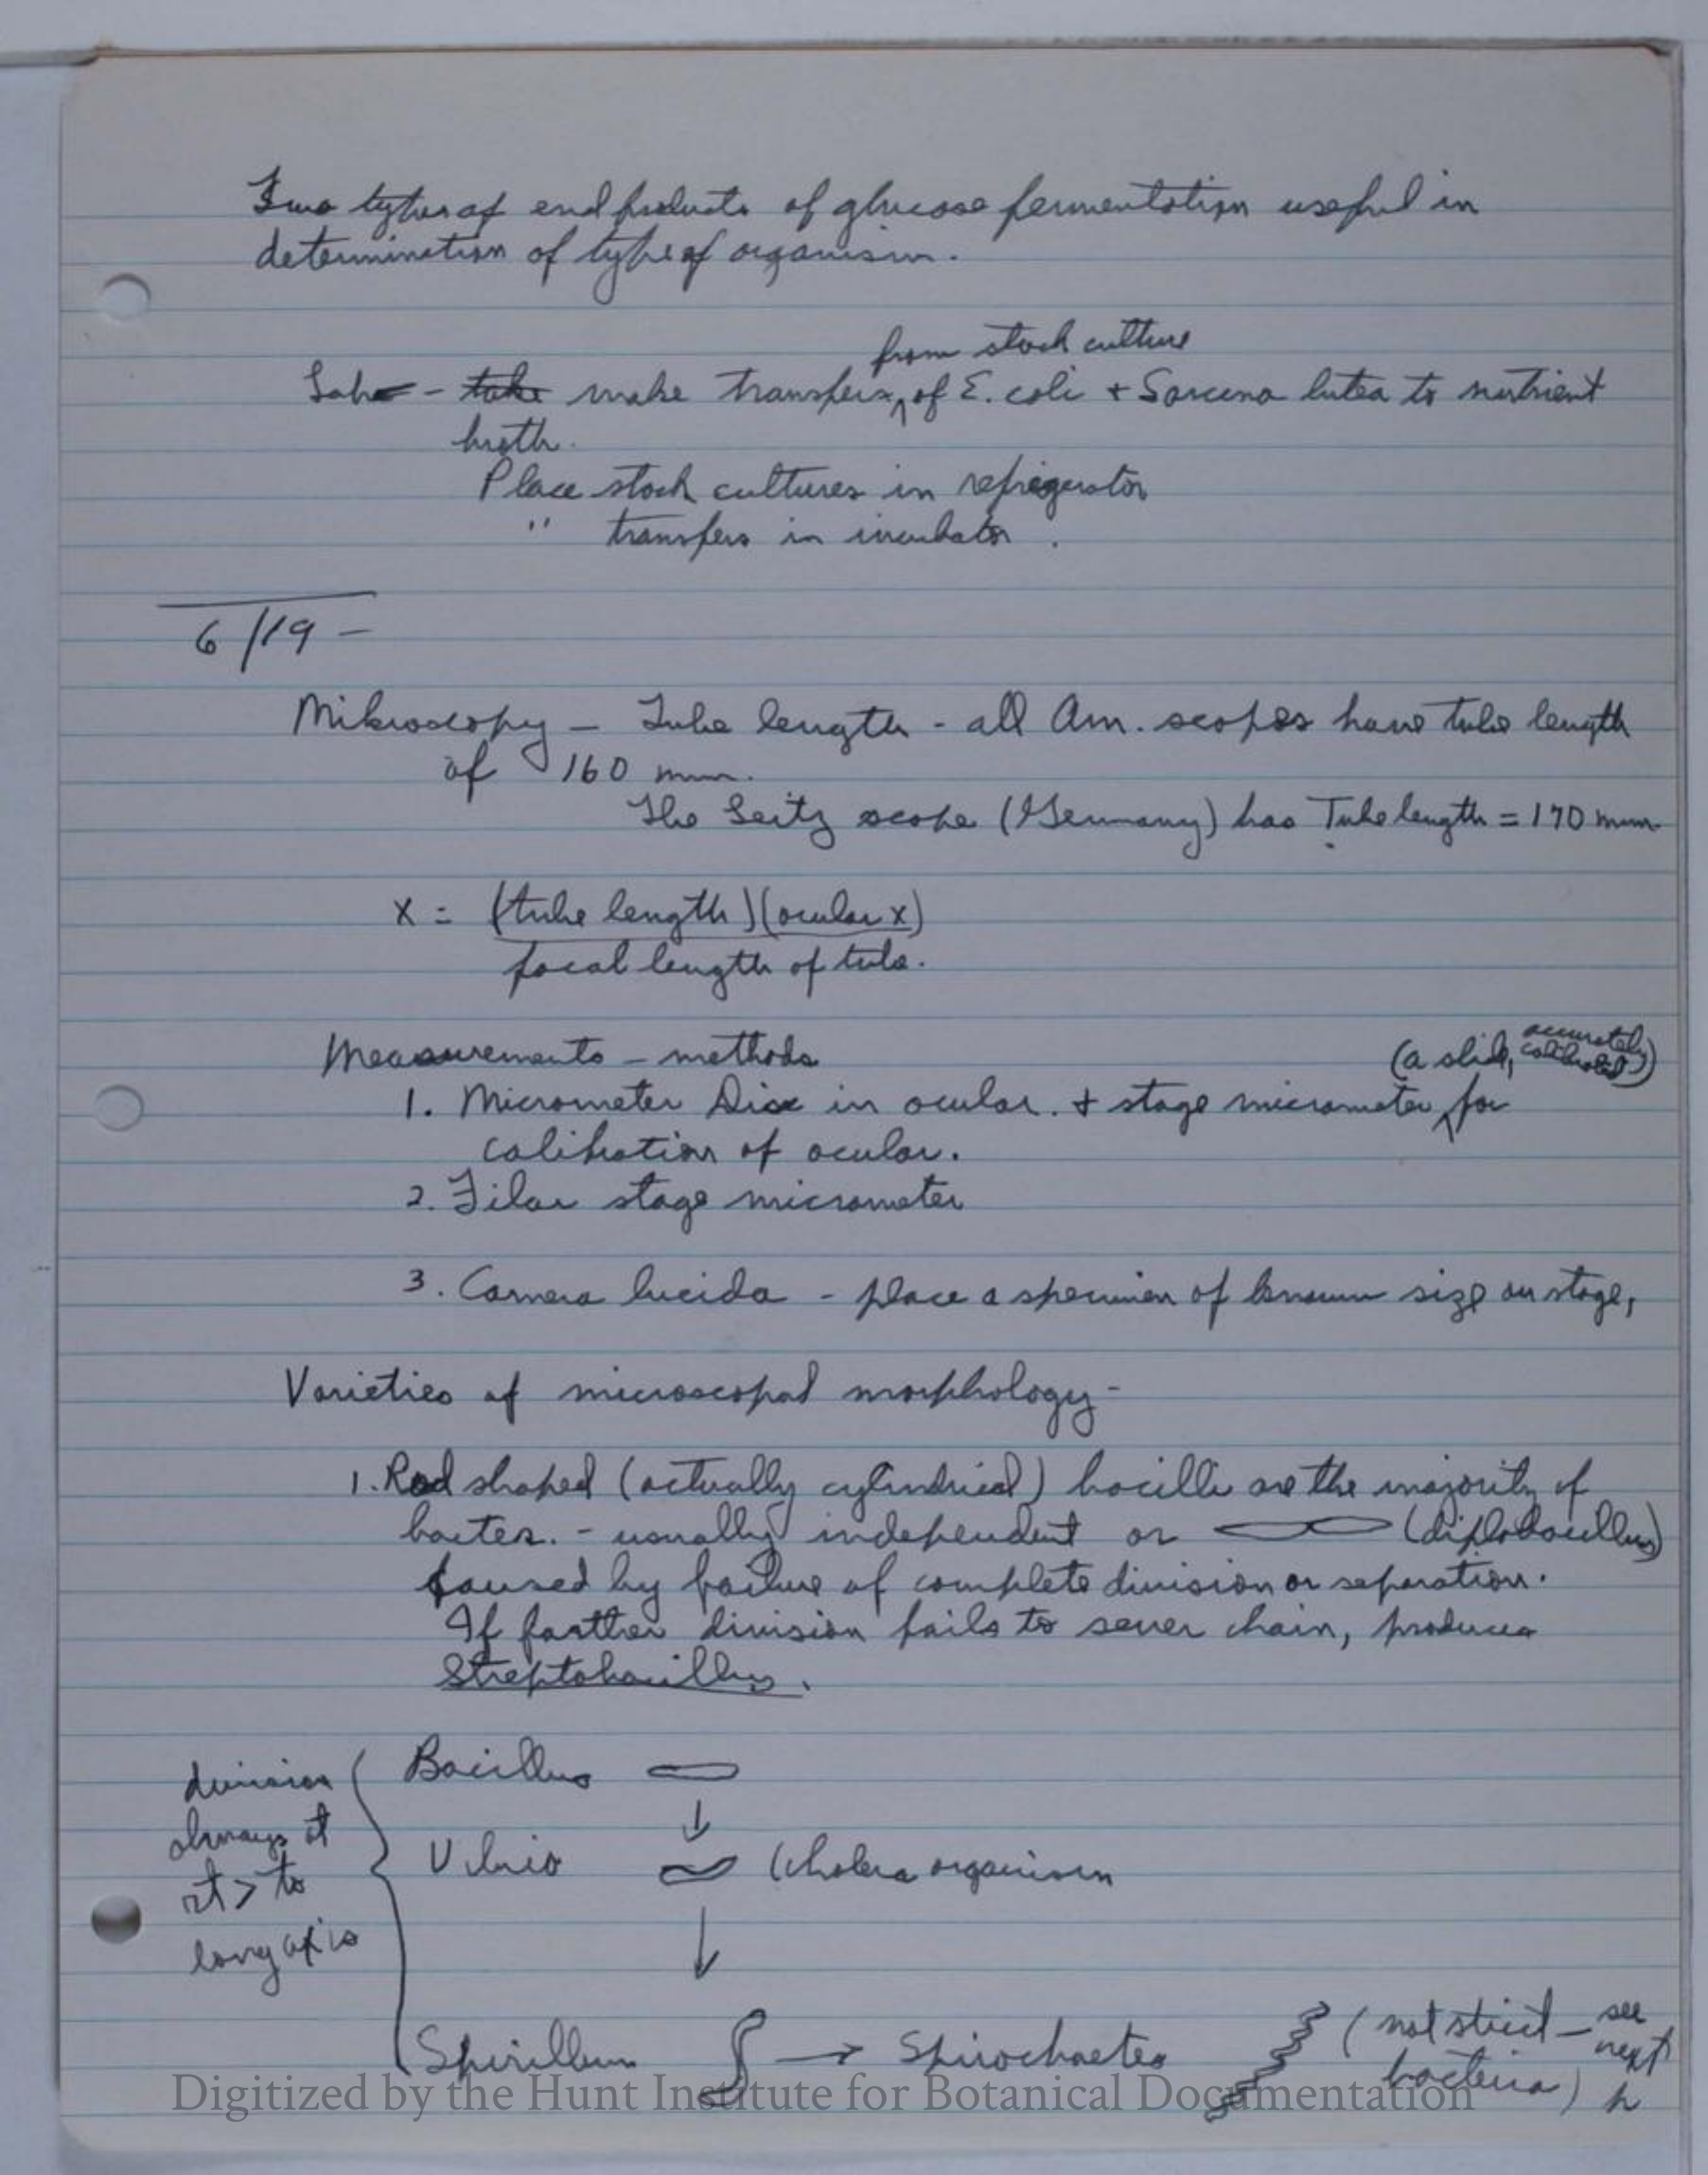 Two types of end products of glucose fermentation useful in
determination of type of organism.
from stock culture
Lab - take make transfers of E. coli + Sarcina lutea to nutrient
broth.
Place stock cultures in refrigerator
" transfers in incubator.
6/19 -
Mikroscopy - Tube length - all Am. scopes have tube length
of 160 mm.
The Leitz scope (Germany) has Tube length = 170 mm.
X = (tube length)(ocular x)
focal length of tube.
Measurements - methods
(a slide, accurately
calibrated)
1. Micrometer Disc in ocular. + stage micrometer for
calibration of ocular.
2. Filar stage micrometer
3. Camera lucida - place a specimen of known size on stage,
Varieties of microscopal morphology -
1. Rod shaped (actually cylindrical) bacilli are the majority of
bacter. - usually independent or (diplobacillus)
caused by failure of complete division or separation.
If farther division fails to sever chain, produces
Streptobacillus.
division
always at
rt > to
long axis
Bacillus
↓
Vibrio (cholera organism
↓
Spirillum → Spirochaetes (not strict bacteria) - see next p
Digitized by the Hunt Institute for Botanical Documentation